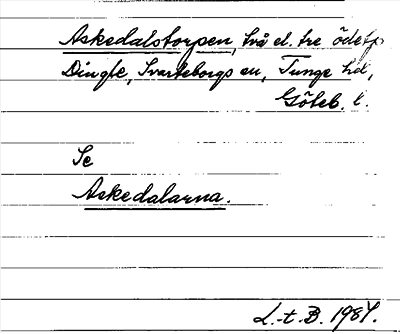 Askedalstorpen, två el. tre ödetp
Dingle, Svarteborgs sn, Tunge hd,
Göteb. l.
Se
Askedalarna.
L.-t. B. 1987.